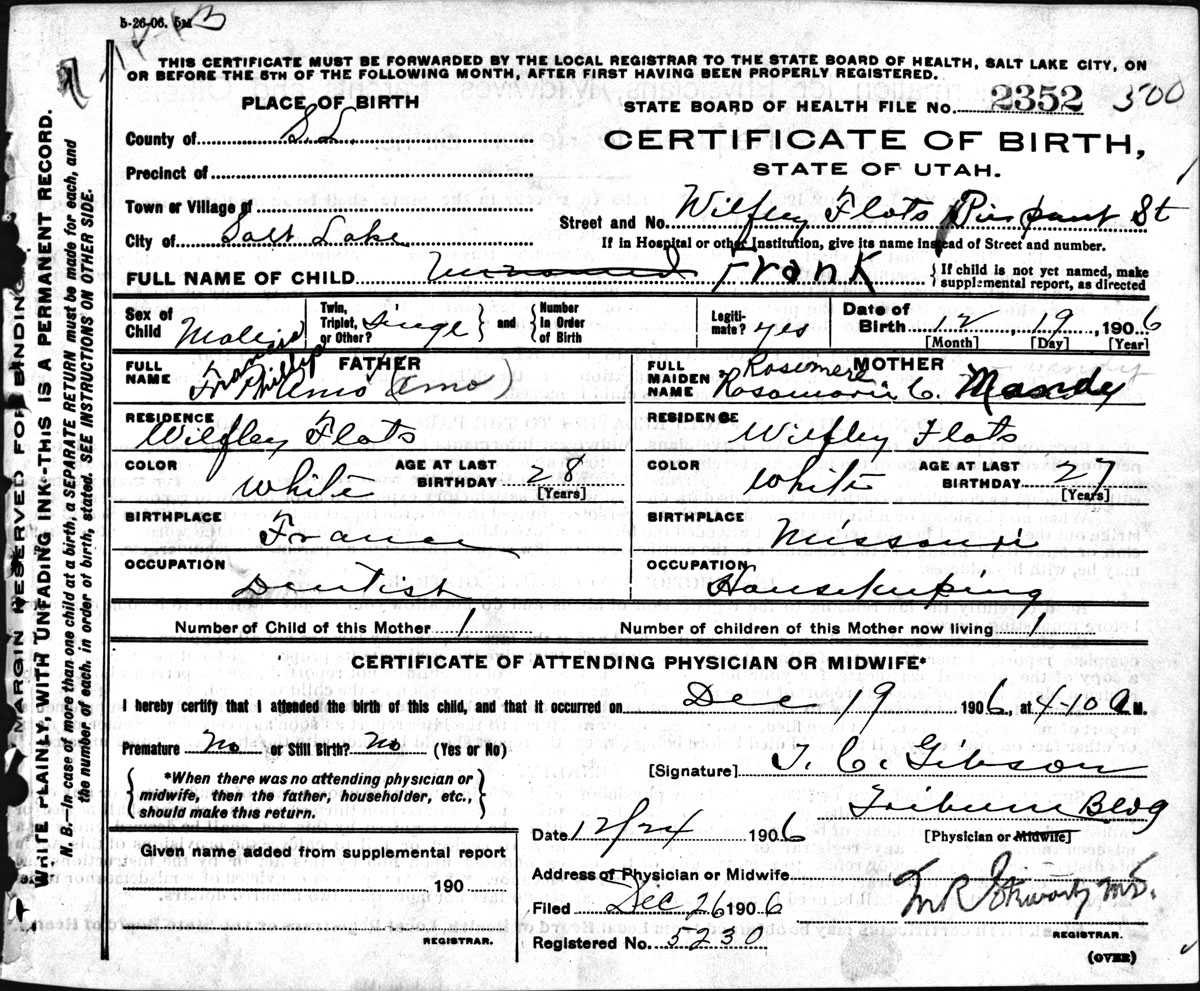 5-26-06. 5M
THIS CERTIFICATE MUST BE FORWARDED BY THE LOCAL REGISTRAR TO THE STATE BOARD OF HEALTH, SALT LAKE CITY, ON
OR BEFORE THE 5TH OF THE FOLLOWING MONTH, AFTER FIRST HAVING BEEN PROPERLY REGISTERED.
MARGIN RESERVED FOR BINDING
WRITE PLAINLY, WITH UNFADING INK-THIS IS A PERMANENT RECORD.
N. B.—In case of more than one child at a birth, a SEPARATE RETURN must be made for each, and
the number of each, in order of birth, stated. SEE INSTRUCTIONS ON OTHER SIDE.
PLACE OF BIRTH
STATE BOARD OF HEALTH FILE NO. 2352 500
County of S. L.
CERTIFICATE OF BIRTH,
STATE OF UTAH.
Precinct of
Town or Village of
Street and No. Wilfley Flats Pierpont St
City of Salt Lake
If in Hospital or other Institution, give its name instead of Street and number.
FULL NAME OF CHILD Unnamed Frank
If child is not yet named, make
supplemental report, as directed
Sex of Child Male
Twin, Triplet, or Other? Single and Number In Order of Birth
Legiti-mate? yes
Date of Birth 12 19, 1906
[Month] [Day] [Year]
FATHER
FULL NAME Francis Phillip Amo (Emo)
MOTHER
FULL MAIDEN NAME Rosemere Rosamarie C. Mandy
RESIDENCE Wilfley Flats
RESIDENCE Wilfley Flats
COLOR White AGE AT LAST BIRTHDAY 28 [Years]
COLOR White AGE AT LAST BIRTHDAY 27 [Years]
BIRTHPLACE France
BIRTHPLACE Missouri
OCCUPATION Dentist
OCCUPATION Housekeeping
Number of Child of this Mother 1
Number of children of this Mother now living 1
CERTIFICATE OF ATTENDING PHYSICIAN OR MIDWIFE*
I hereby certify that I attended the birth of this child, and that it occurred on Dec 19 1906, at 4-10 a M.
Premature No or Still Birth? No (Yes or No)
*When there was no attending physician or
midwife, then the father, householder, etc.,
should make this return.
[Signature] T. C. Gibson
Tribune Bldg
[Physician or Midwife]
Date 12/24 1906
Given name added from supplemental report
190
REGISTRAR.
Address of Physician or Midwife
Filed Dec 26 1906
M.D.
REGISTRAR.
Registered No. 5230
(OVER)